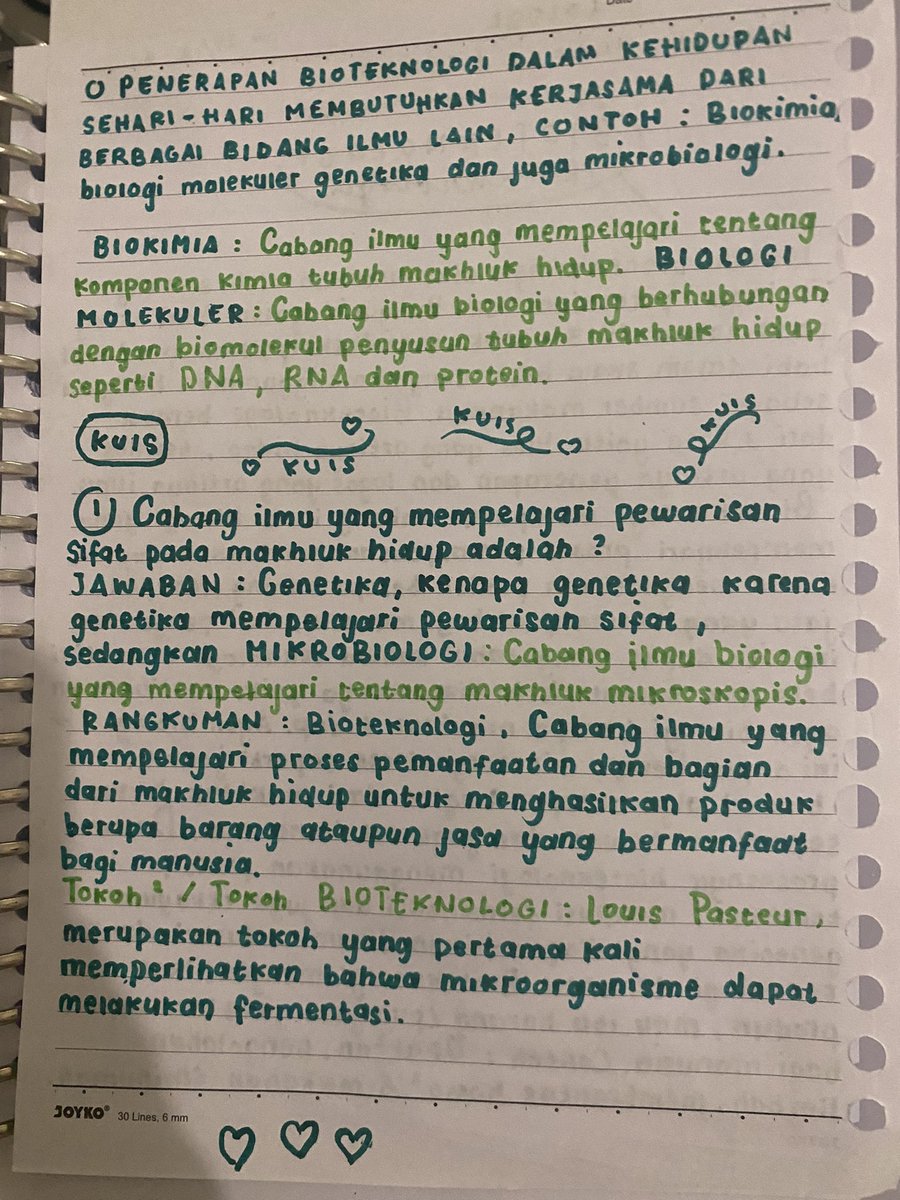 O PENERAPAN BIOTEKNOLOGI DALAM KEHIDUPAN
SEHARI-HARI MEMBUTUHKAN KERJASAMA DARI
BERBAGAI BIDANG ILMU LAIN, CONTOH : Biokimia,
biologi molekuler genetika dan juga mikrobiologi.
BIOKIMIA : Cabang ilmu yang mempelajari tentang
komponen kimia tubuh makhluk hidup. BIOLOGI
MOLEKULER : Cabang ilmu biologi yang berhubungan
dengan biomolekul penyusun tubuh makhluk hidup
seperti DNA, RNA dan protein.
KUIS KUIS KUIS KUIS
1 Cabang ilmu yang mempelajari pewarisan
sifat pada makhluk hidup adalah ?
JAWABAN : Genetika, kenapa genetika karena
genetika mempelajari pewarisan sifat,
sedangkan MIKROBIOLOGI : Cabang ilmu biologi
yang mempelajari tentang makhluk mikroskopis.
RANGKUMAN : Bioteknologi, Cabang ilmu yang
mempelajari proses pemanfaatan dan bagian
dari makhluk hidup untuk menghasilkan produk
berupa barang ataupun jasa yang bermanfaat
bagi manusia.
Tokoh² / Tokoh BIOTEKNOLOGI : Louis Pasteur,
merupakan tokoh yang pertama kali
memperlihatkan bahwa mikroorganisme dapat
melakukan fermentasi.
JOYKO® 30 Lines, 6 mm